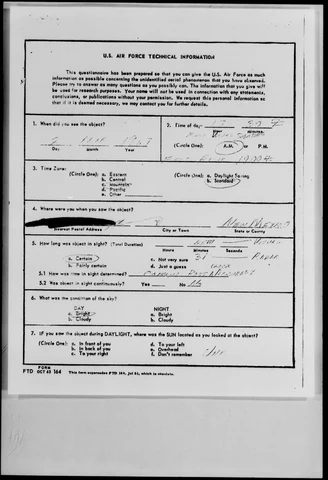 U.S. AIR FORCE TECHNICAL INFORMATION
This questionnaire has been prepared so that you can give the U.S. Air Force as much
information as possible concerning the unidentified aerial phenomenon that you have observed.
Please try to answer as many questions as you possibly can. The information that you give will
be used for research purposes. Your name will not be used in connection with any statements,
conclusions, or publications without your permission. We request this personal information so
that if it is deemed necessary, we may contact you for further details.
1. When did you see the object?
2 1967
Day Month Year
2. Time of day:
HOUR MINUTES
(Circle One): A.M. or P.M.
3. Time Zone:
(Circle One): a. Eastern
b. Central
c. Mountain
d. Pacific
e. Other
(Circle One): a. Daylight Saving
b. Standard
4. Where were you when you saw the object?
NEW MEXICO
Nearest Postal Address City or Town State or Country
5. How long was object in sight? (Total Duration)
Hours Minutes Seconds
a. Certain c. Not very sure
b. Fairly certain d. Just a guess
RADAR
5.1 How was time in sight determined?
5.2 Was object in sight continuously? Yes No
6. What was the condition of the sky?
DAY NIGHT
a. Bright a. Bright
b. Cloudy b. Cloudy
7. IF you saw the object during DAYLIGHT, where was the SUN located as you looked at the object?
(Circle One): a. In front of you d. To your left
b. In back of you e. Overhead
c. To your right f. Don't remember
FORM
FTD OCT 62 164 This form supersedes FTD 164, Jul 61, which is obsolete.